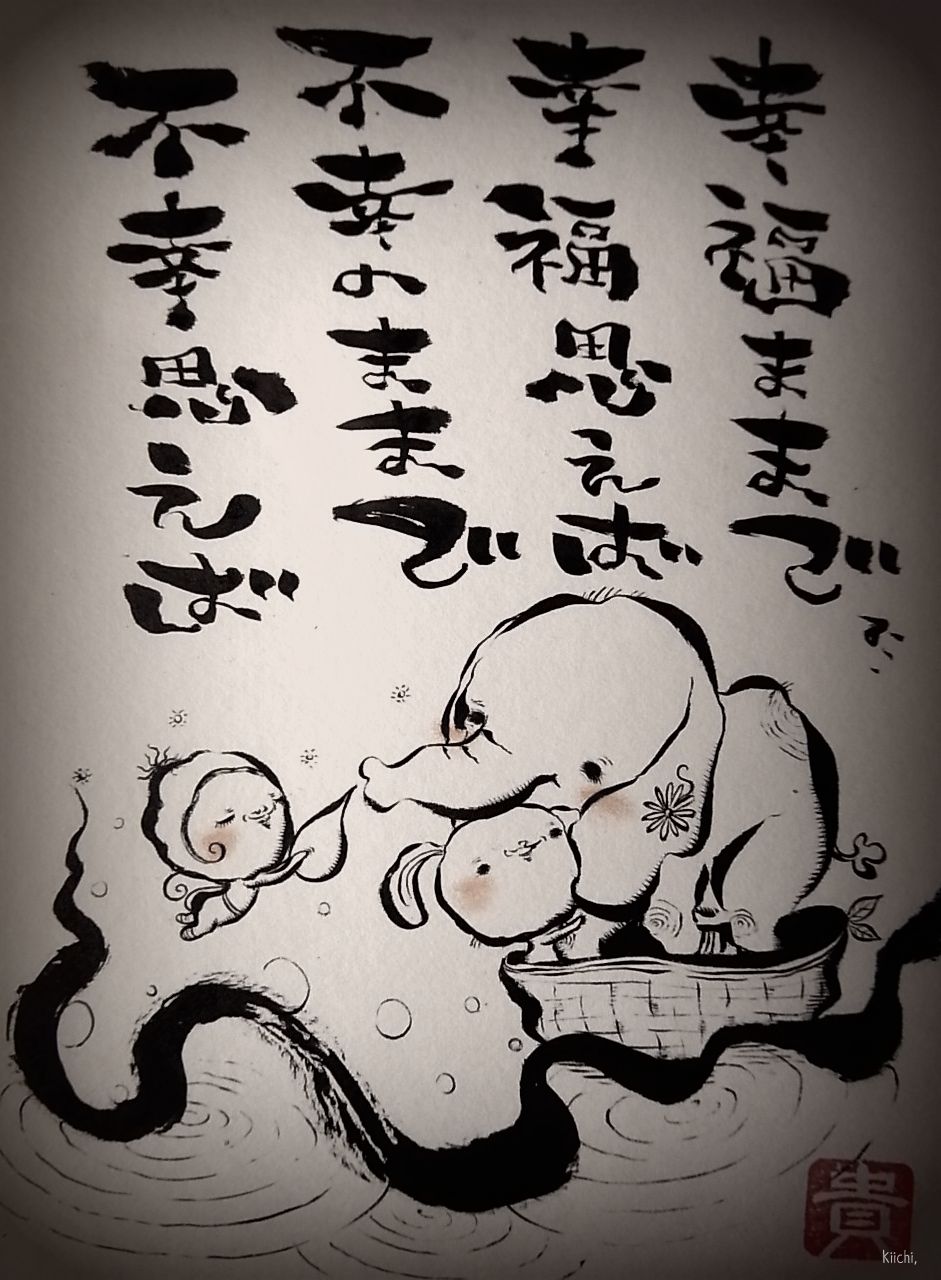 不幸思えば
不幸のままで
幸福思えば
幸福ままで
貴
Kiichi,